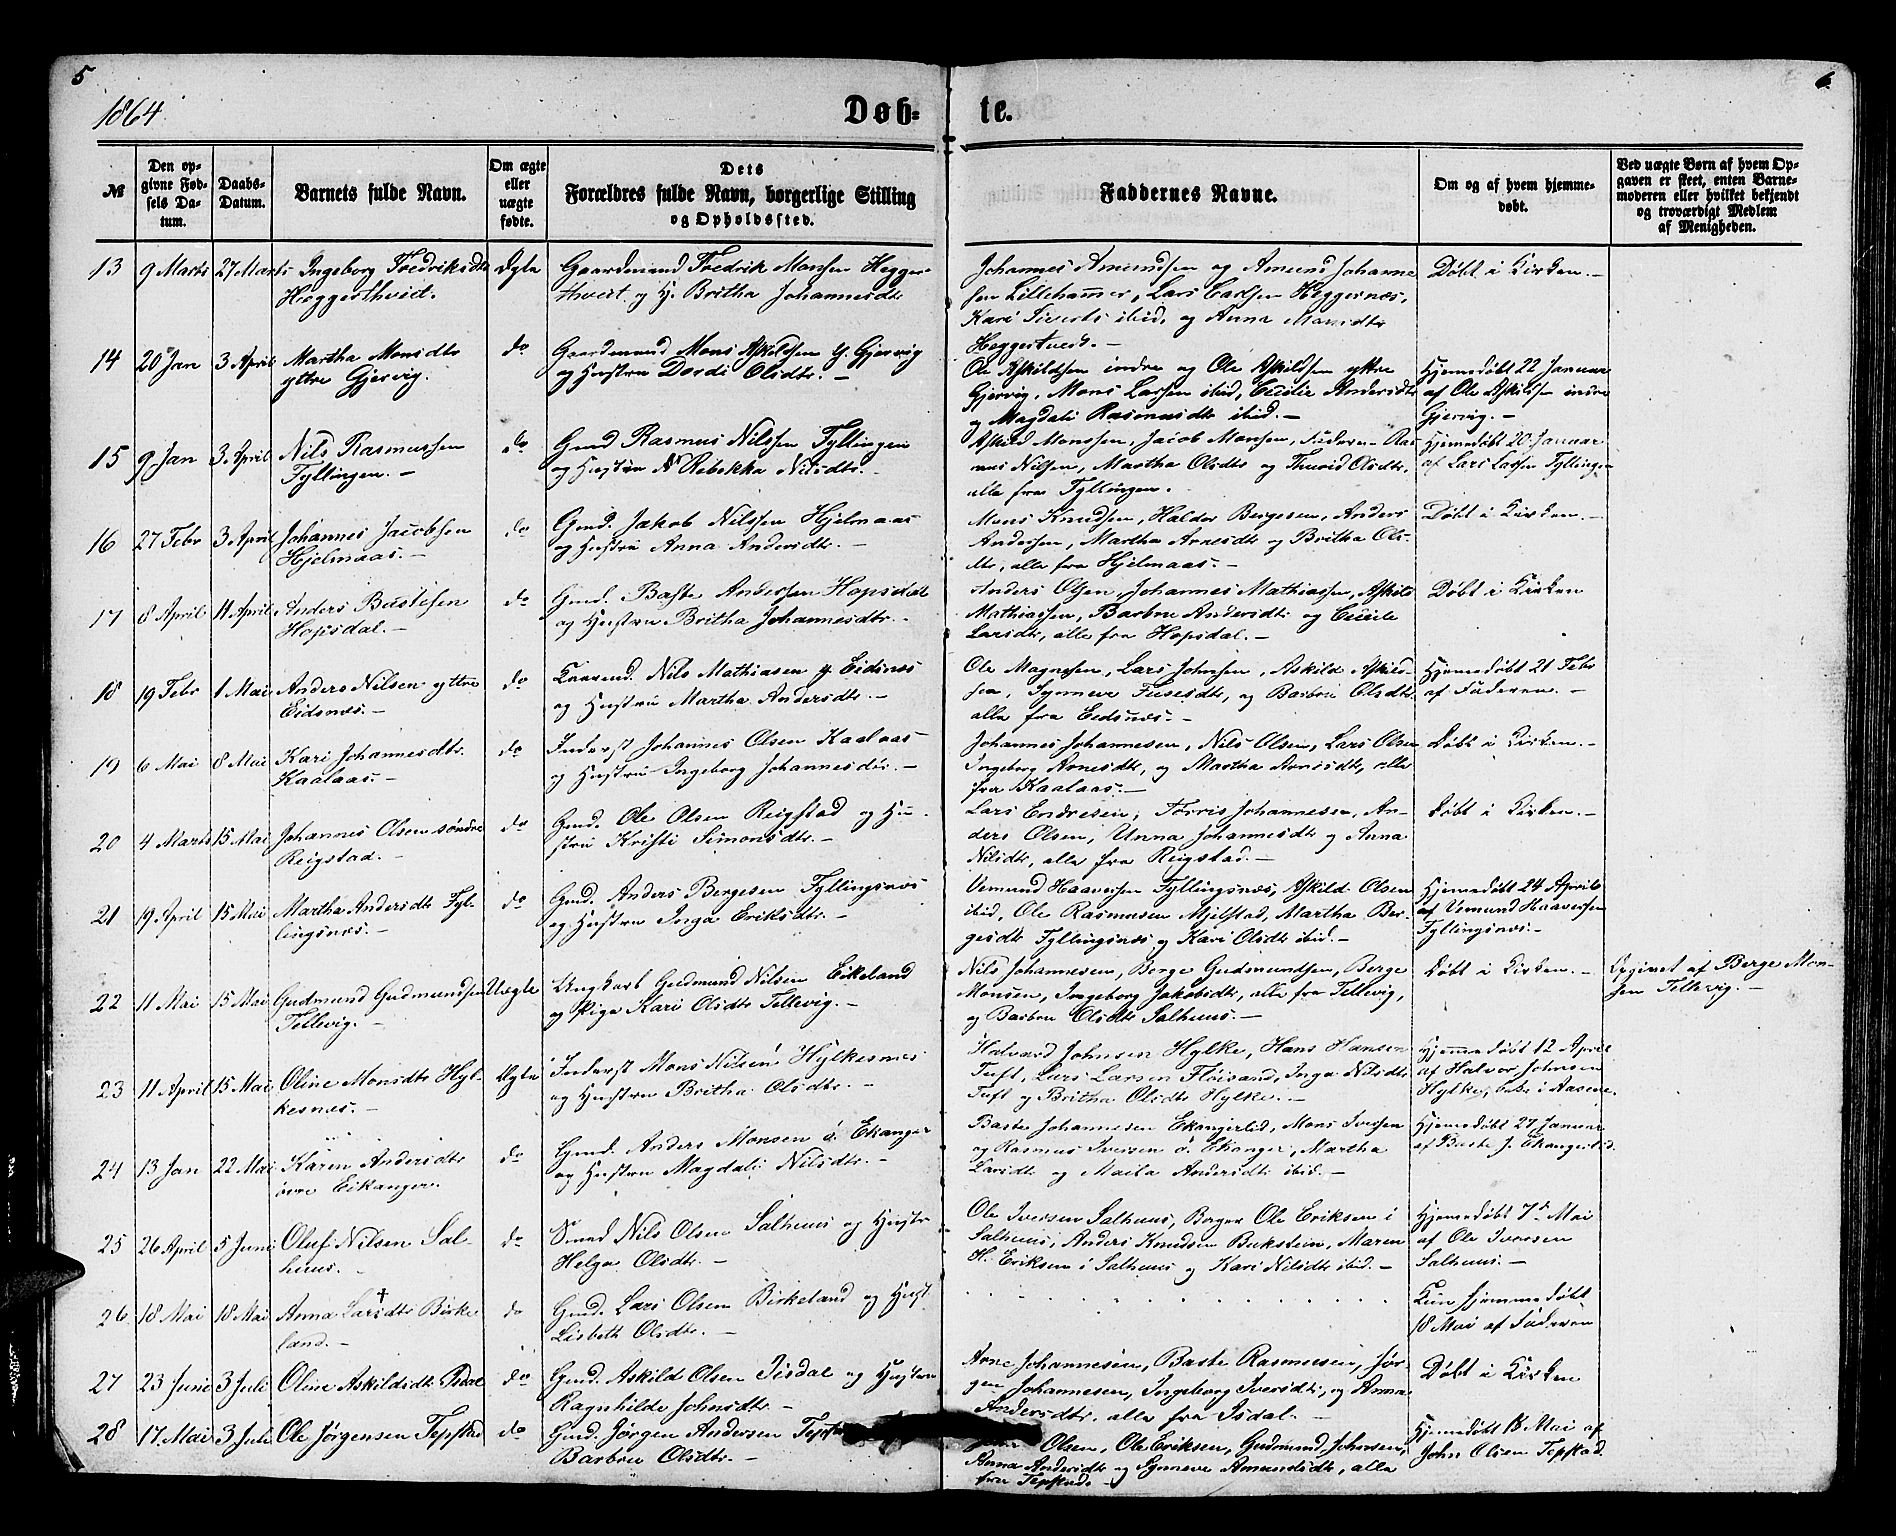 5
6
1864
Døb-
te.
№
Den op-
givne Fød-
sels Da-
tum.
Daabs-
Datum.
Barnets fulde Navn.
Om ægte
eller
uægte
fødte.
Dets
Forældres fulde Navn, borgerlige Stilling
og Opholdssted.
Faddernes Navne.
Om og af hvem hjemme-
døbt.
Ved uægte Børn af hvem Op-
gaven er skeet, enten Barne-
moderen eller hvilket bekjendt
og troværdigt Medlem
af Menigheden.
13 9 Marts 27 Marts Ingeborg Fredriksdtr
Heggerthveit.
Ægte
Gaardmand Fredrik Monsen Hegger-
thveit og H. Britha Johannesdtr
Johannes Amundsen og Amund Johanne
sen Lillehammer, Lars Carlsen Heggernæs,
Kari Siverts ibid, og Anna Monsdtr
Heggertveit.-
Døbt i Kirken.-
14 20 Jan 3 April Martha Monsdtr
yttre Gjervig.
do
Gaardmand Mons Askildsen y. Gjervig
og Hustru Dordi Olsdtr.-
Ole Askildsen indre og Ole Askildsen yttre
Gjervig, Mons Larsen ibid, Cecilie Andersdtr
og Magdali Rasmusdtr ibid.-
Hjemmedøbt 22 Januar
af Ole Askildsen indre
Gjervig.-
15 9 Jan 3 April Nils Rasmussen
Fyllingen.-
do
Gmd Rasmus Nilssen Fyllingen
og Hustru Rebekka Nilsdtr.-
Askild Monssen, Jacob Monsen, Faderen Ras-
mus Nilsen, Martha Olsdtr og Olsdtr,
alle fra Fyllingen.
Hjemmedøbt 20 Januar
af Lars Larsen Fyllingen
16 27 Febr 3 April Johannes Jacobsen
Hjelmaas.-
do
Gmd. Jakob Nilssen Hjelmaas
og Hustru Anna Andersdtr.-
Mons Knudsen, Haldor Bergesen, Anders
Andersen, Martha Arnesdtr og Britha Ols-
dtr, alle fra Hjelmaas.-
Døbt i Kirken.-
17 8 April 11 April Anders Bastesen
Hopsdal.-
do
Gmd. Baste Andersen Hopsdal
og Hustru Britha Johannesdtr.-
Anders Olsen, Johannes Mathiassen, Askild
Mathiassen, Barbru Andersdtr og Cecilie
Larsdtr, alle fra Hopsdal.-
Døbt i Kirken
18 19 Febr 1 Mai Anders Nilsen yttre
Eidsnæs.-
do
Nils Mathiasen y. Eidsnæs
og Hustru Martha Andersdtr.-
Ole Magnesen, Lars Johnsen, Askild Askild-
sen, Synneve og Barbru Olsdtr
alle fra Eidsnæs.-
Hjemmedøbt 21 Febr
af Faderen.-
19 6 Mai 8 Mai Kari Johannesdtr.
Kaalaas.-
do
Inderst Johannes Olsen Kaalaas
og Hustru Ingeborg Johannesdtr.-
Johannes Johannesen, Nils Olsen, Lars Olsen
Ingeborg Arnesdtr, og Martha Arnesdtr, alle
fra Kaalaas.-
Døbt i Kirken.-
20 4 Marts 15 Mai Johannes Olsen søndre
Reigstad.-
do
Gmd. Ole Olsen Reigstad og Hu-
stru Kristi Simonsdtr.-
Lars Endresen, Torris Johannesen, An-
ders Olsen, Unna Johannesdtr og Anna
Nilsdtr, alle fra Reigstad.-
Døbt i Kirken.-
21 19 April 15 Mai Martha Andersdtr Fyl-
lingsnæs.-
do
Gmd. Anders Bergesen Fyllingsnæs
og Hustru Inga Eriksdtr.-
Vemund Haaversen Fyllingsnæs, Askild Olsen
ibid, Ole Rasmusen Mjelstad, Martha Ber-
gesdtr Fyllingsnæs og Kari Olsdtr ibid.-
Hjemmedøbt 24 April
af Vemund Haaversen
Fyllingsnæs.-
22 11 Mai 15 Mai Gudmund Gudmundsen
Tellevig.-
Uægte
Ungkarl Gudmund Nilsen Eikeland
og Pige Kari Olsdtr Tellevig.-
Nils Johannesen, Berge Gudmundsen, Berge
Monsen, Ingeborg Jakobsdtr, alle fra Tellevig,
og Barbru Olsdtr Salhuus.-
Døbt i Kirken.-
Opgivet af Berge Mon-
sen Tellevig.-
23 11 April 15 Mai Oline Monsdtr Hyl-
kesnes.-
Ægte
Inderst Mons Nilsen Hylkesnes
og Hustru Britha Olsdtr.-
Halvard Johnsen Hylke, Hans Hansen
Tuft, Lars Larsen Floisand, Inga Nilsdtr
Tuft og Britha Olsdtr Hylke.-
Hjemmedøbt 12 April
af Halvor Johnsen
Hylke,
24 13 Jan 22 Mai Karen Andersdtr
øvre Eikanger.
do
Gmd. Anders Monsen ö. Ekanger
og Hustru Magdali Nilsdtr.-
Baste Johannesen Ekangerlid, Mons Iversen
og Rasmus Iversen ö. Ekanger, Martha
Larsdtr og Andersdtr ibid.-
Hjemmedøbt 27 Januar
af Baste J. Ekangerlid.
25 26 April 5 Juni Oluf Nilsen Sal-
huus.-
do
Nils Olsen Salhuus og Hustru
Helga Olsdtr.-
Ole Iversen Salhuus, Borger Ole Eriksen i
Salhuus, Anders Knudsen Bukstein, Maren
H. Eriksen i Salhuus og Kari Nilsdtr ibid.-
Hjemmedøbt 7de Mai
af Ole Iversen
Salhuus.-
26 18 Mai 18 Mai Anna Larsdtr Birke
land.-
do
Gmd. Lars Olsen Birkeland og Hust
Lisbeth Olsdtr.-
Kun hjemmedøbt
18 Mai af Faderen
27 23 Juni 3 Juli Oline Askildsdtr Isdal
do
Gmd. Askild Olsen Iisdal og Hustru
Ragnhilde Johnsdtr.-
Arne Johannesen, Baste Rasmusen, Jør-
gen Johannesen, Ingeborg Iversdtr, og Anna
Andersdtr, alle fra Isdal.-
Døbt i Kirken
28 17 Mai 3 Juli Ole Jørgensen Tepstad
do
Gmd. Jørgen Andersen
Barbru Olsdtr.-
Olsen, Ole Eriksen, Gudmund Johnsen,
Anna Andersdtr og Synneve Amundsdtr, alle
fra Tepstad.-
Hjemmedøbt 18 Mai af
John Olsen Tepstad